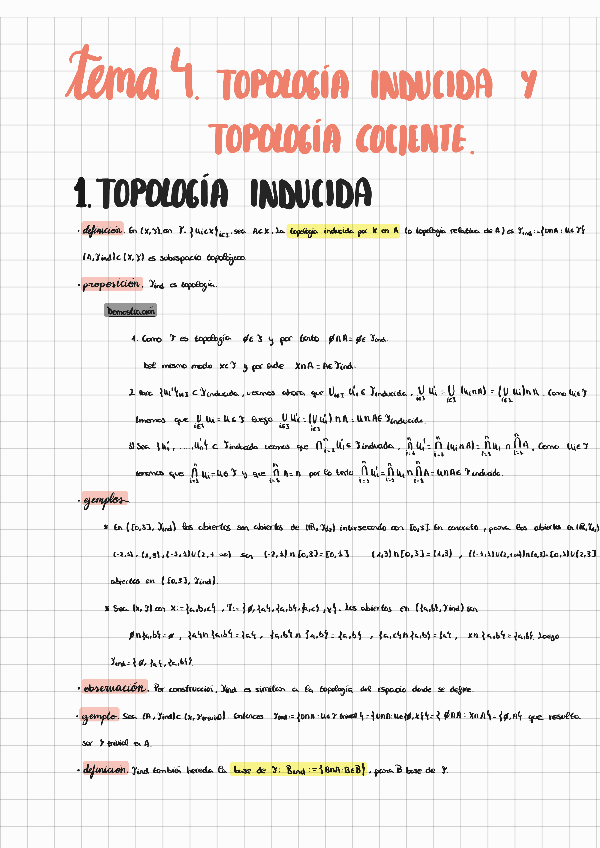 tema 4. TOPOLOGÍA INDUCIDA Y
TOPOLOGÍA COCIENTE.
1. TOPOLOGÍA INDUCIDA
· definición. En (X,T) con T = {Ui⊂X}i∈I, sea A⊂X. La topología inducida por X en A (o topología relativa de A) es Tind := {U∩A : U∈T}
(A,Tind)⊂(X,T) es subespacio topológico.
· proposición. Tind es topología.
Demostración
1. Como T es topología ∅∈T y por tanto ∅∩A=∅∈Tind.
Del mismo modo X∈T y por ende X∩A=A∈Tind.
2. Para {Ui'}i∈I ⊂ Tinducida, veamos ahora que ∪i∈I Ui' ∈ Tinducida. ∪i∈I Ui' = ∪i∈I (Ui∩A) = (∪i∈I Ui)∩A. Como Ui∈T
tenemos que ∪i∈I Ui = U∈T luego ∪i∈I Ui' = (∪i∈I Ui)∩A = U∩A∈Tinducida.
3) Sea {U1', ....., Un'} ⊂ Tinducida veamos que ∩i=1 Ui' ∈ Tinducida. ∩i=1 Ui' = ∩i=1 (Ui∩A) = ∩i=1 Ui ∩ ∩i=1 A. Como Ui∈T
tenemos que ∩i=1 Ui = U∈T y que ∩i=1 A=A por lo tanto ∩i=1 Ui' = ∩i=1 Ui ∩ ∩i=1 A = U∩A∈ Tinducida.
· ejemplos
* En ([0,3], Tind) los abiertos son abiertos de (R, Tu) intersecando con [0,3]. En concreto, para los abiertos en (R,Tu)
(-2,1), (1,3), (-1,1)∪(2,+∞) son (-2,1)∩[0,3]=[0,1) (1,3)∩[0,3]=(1,3), ((-1,1)∪(2,+∞))∩[0,3]=[0,1)∪(2,3]
abiertos en ([0,3], Tind).
* Sea (X,T) con X:={a,b,c}, T:={∅,{a},{a,b},{a,c},X}. Los abiertos en ({a,b}, Tind) son
∅∩{a,b}=∅, {a}∩{a,b}={a}, {a,b}∩{a,b}={a,b}, {a,c}∩{a,b}={a}, X∩{a,b}={a,b}. Luego
Tind={∅,{a},{a,b}}.
· observación. Por construcción, Tind es similar a la topología del espacio donde se define.
· ejemplo Sea (A,Tind)⊂(X,Ttrivial). Entonces Tind:={U∩A : U∈Ttrivial}={U∩A : U∈{∅,X}}={∅∩A : X∩A}={∅,A} que resulta
ser T trivial en A.
· definición. Tind también hereda la base de T: Bind:={B∩A : B∈B}, para B base de T.